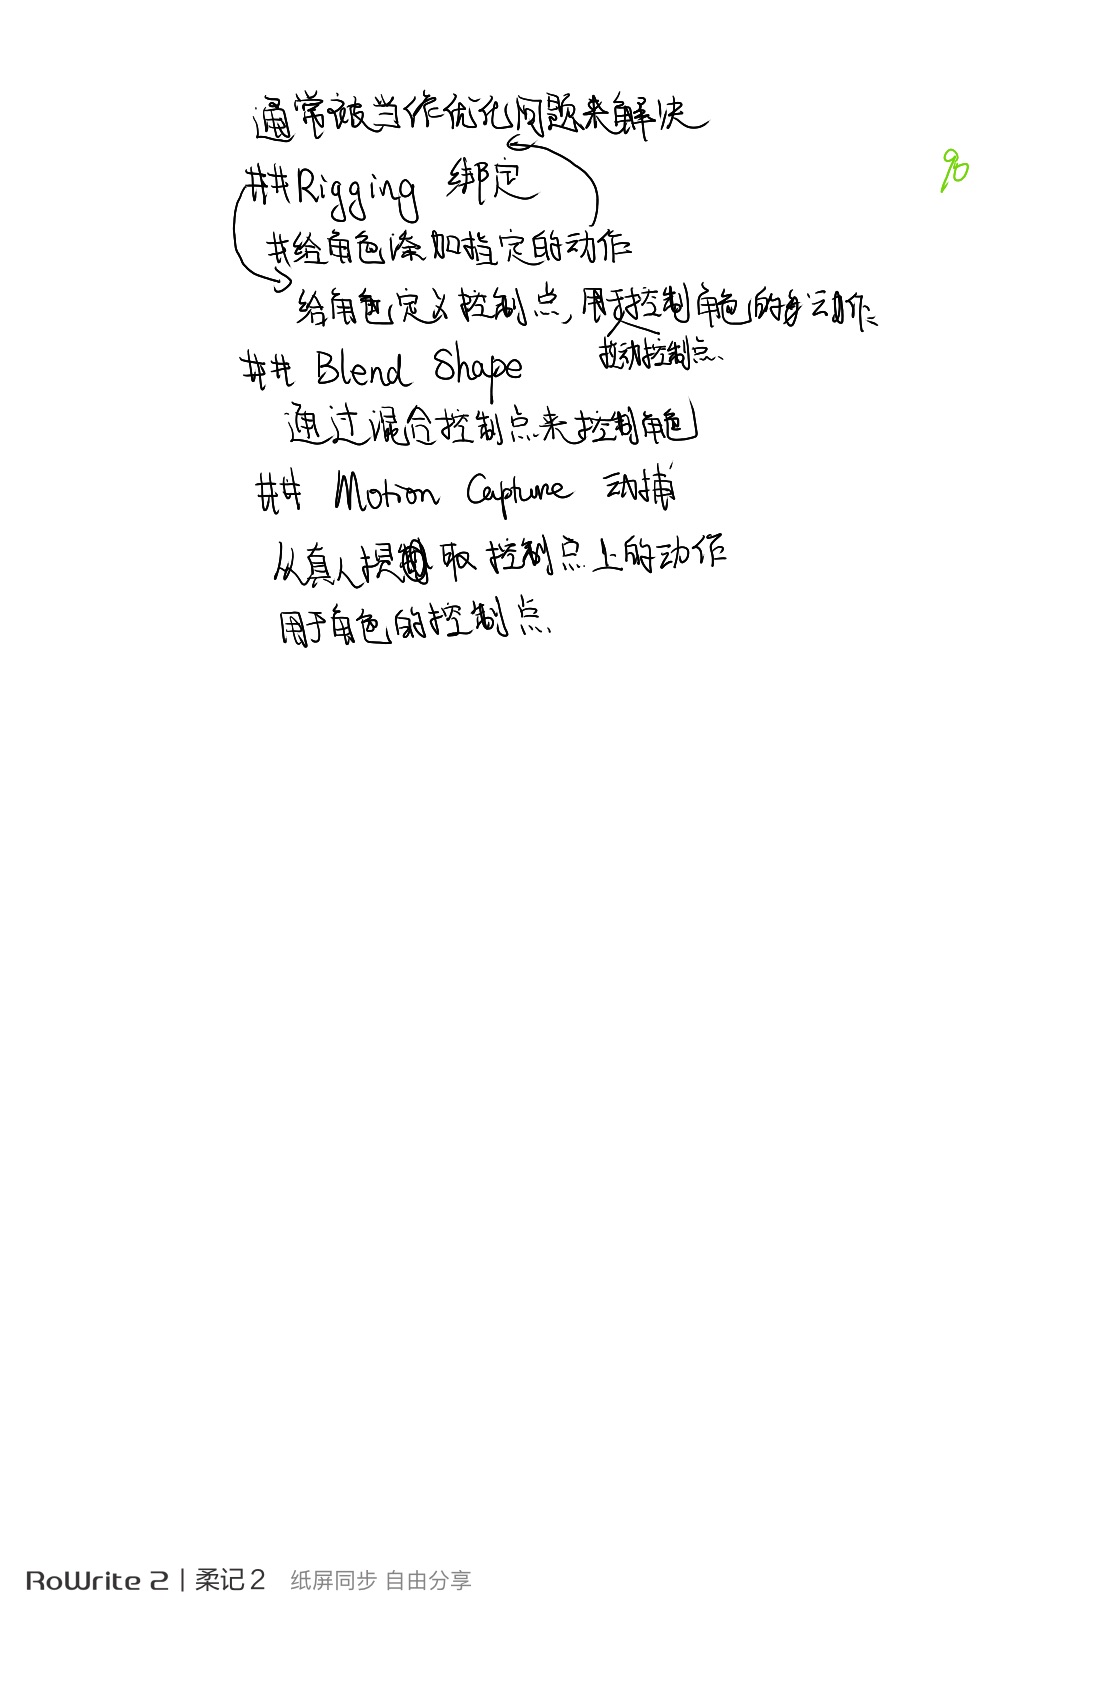 通常被当作优化问题来解决
##Rigging 绑定
#给角色添加指定的动作
给角色定义控制点,用于控制角色的动作
拉动控制点
## Blend Shape
通过混合控制点来控制角色
## Motion Capture 动捕
从真人提取控制点上的动作
用于角色的控制点
RoWrite 2 | 柔记 2 纸屏同步 自由分享